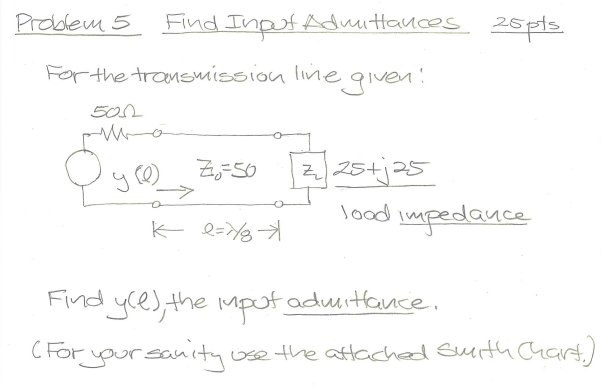 Problem 5 Find Input Admittances 25pts
For the transmission line given:
50Ω
y(l) Z₀=50 Z_L 25+j25
load impedance
l=λ/8
Find y(l), the input admittance.
(For your sanity use the attached Smith Chart.)